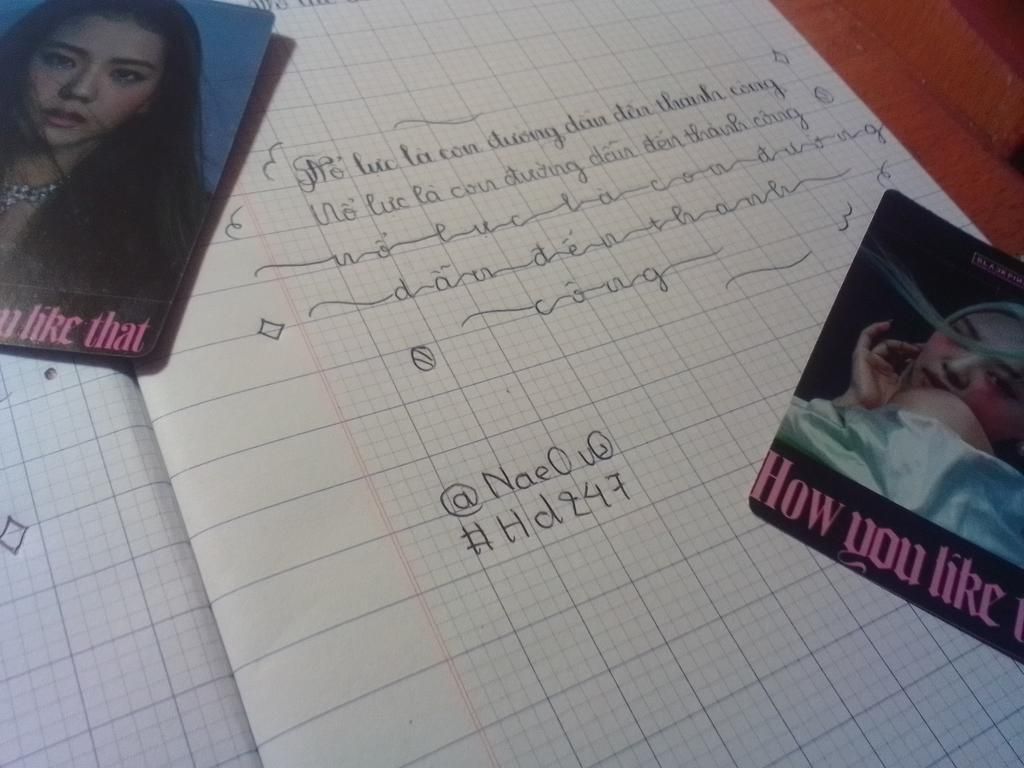 Nỗ lực là con đường dẫn đến thành công
Nỗ lực là con đường dẫn đến thành công
nỗ lực là con đường
dẫn đến thành
công
@NaeOvO
#Hd247
u like that
BLACKPINK
How you like t